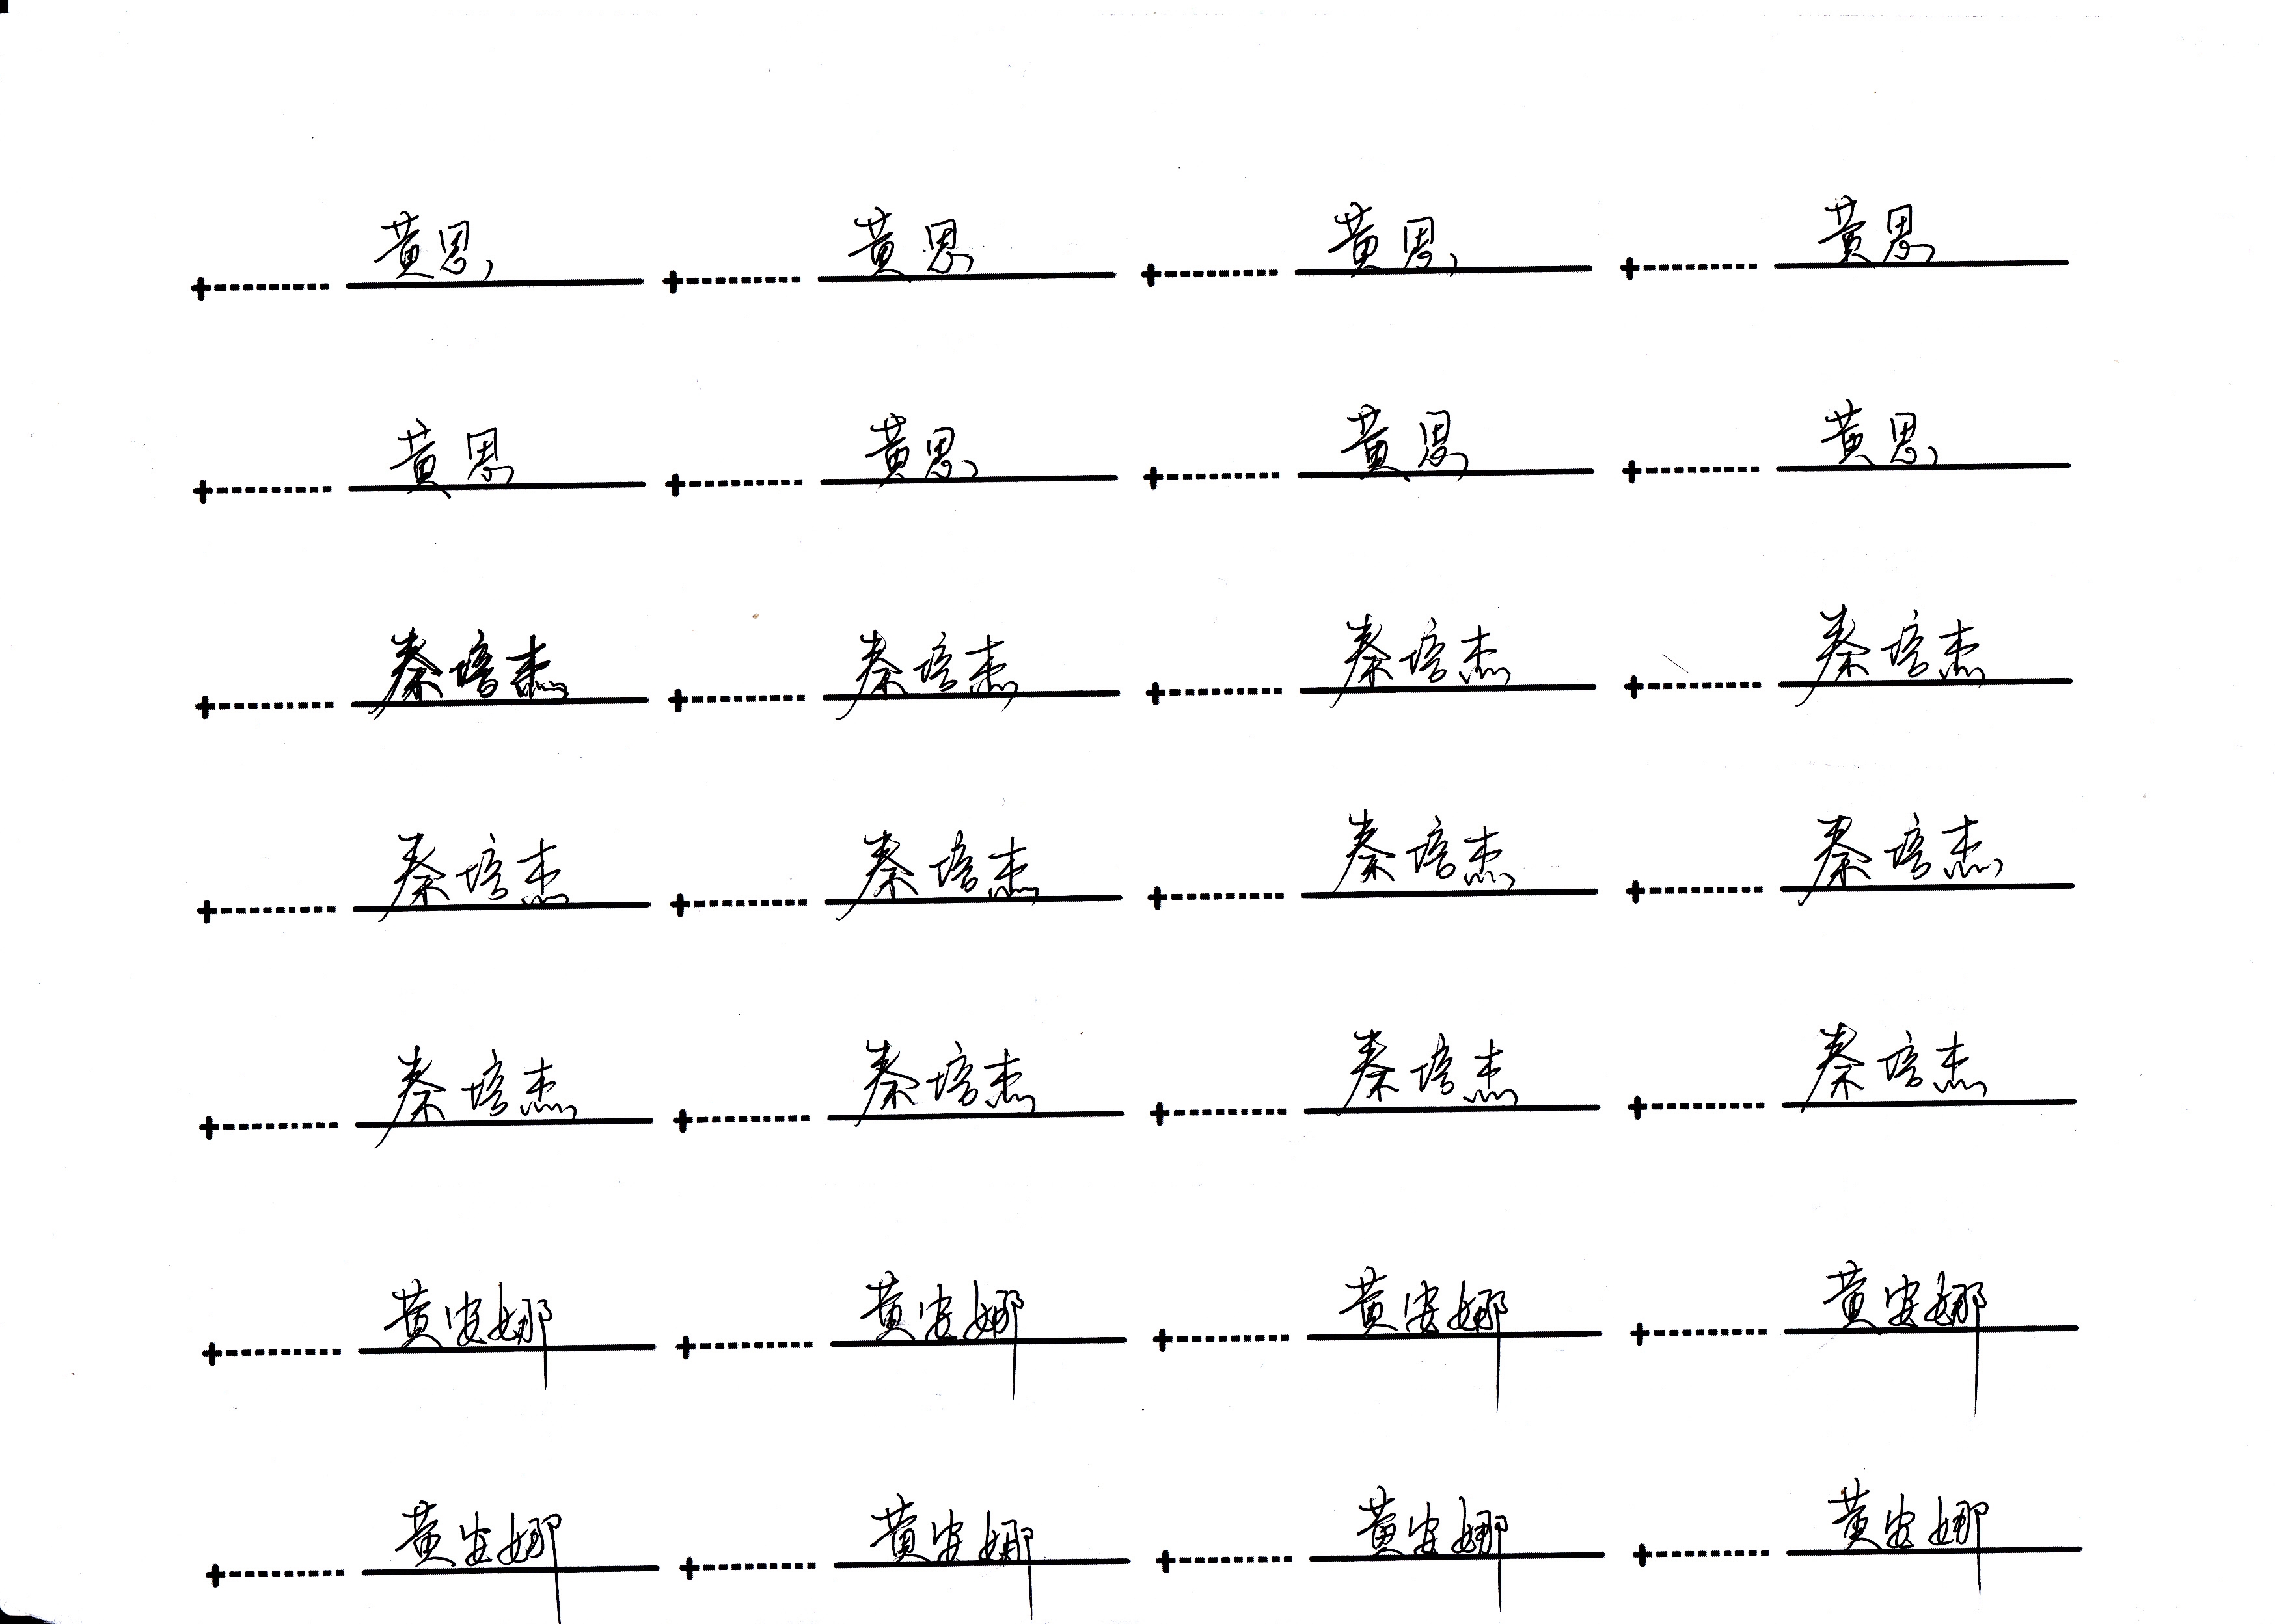 黄恩 黄恩 黄恩 黄恩
黄恩 黄恩 黄恩 黄恩
秦培杰 秦培杰 秦培杰 秦培杰
秦培杰 秦培杰 秦培杰 秦培杰
秦培杰 秦培杰 秦培杰 秦培杰
黄安娜 黄安娜 黄安娜 黄安娜
黄安娜 黄安娜 黄安娜 黄安娜